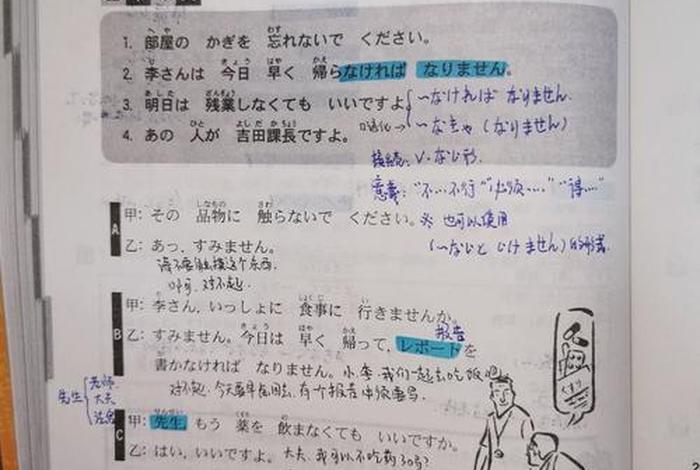 1. 部屋の かぎを 忘れないで ください。
2. 李さんは 今日 早く 帰らなければ なりません。
3. 明日は 残業しなくても いいですよ。
～なければ なりません.
4. あの 人が 吉田課長ですよ。
口语化→ ～なきゃ (なりません)
接続: V-ない形.
意義: "不…不行" "必须……" "得…"
A
甲: その 品物に 触らないで ください。
※ 也可以使用
乙: あっ, すみません。
(～ないと いけません) 的形式
请不要触摸这个东西.
啊, 对不起.
B
甲: 李さん, いっしょに 食事に 行きませんか。
乙: すみません。今日は 早く 帰って, レポートを
报告
書かなければ なりません。
小李, 我们一起去吃饭吧
对不起, 今天要早点回去, 有个报告必须要写.
先生 老师 大夫
C
甲: 先生, もう 薬を 飲まなくても いいですか。
乙: はい, いいですよ。
大夫, 我可以不吃药了吗?